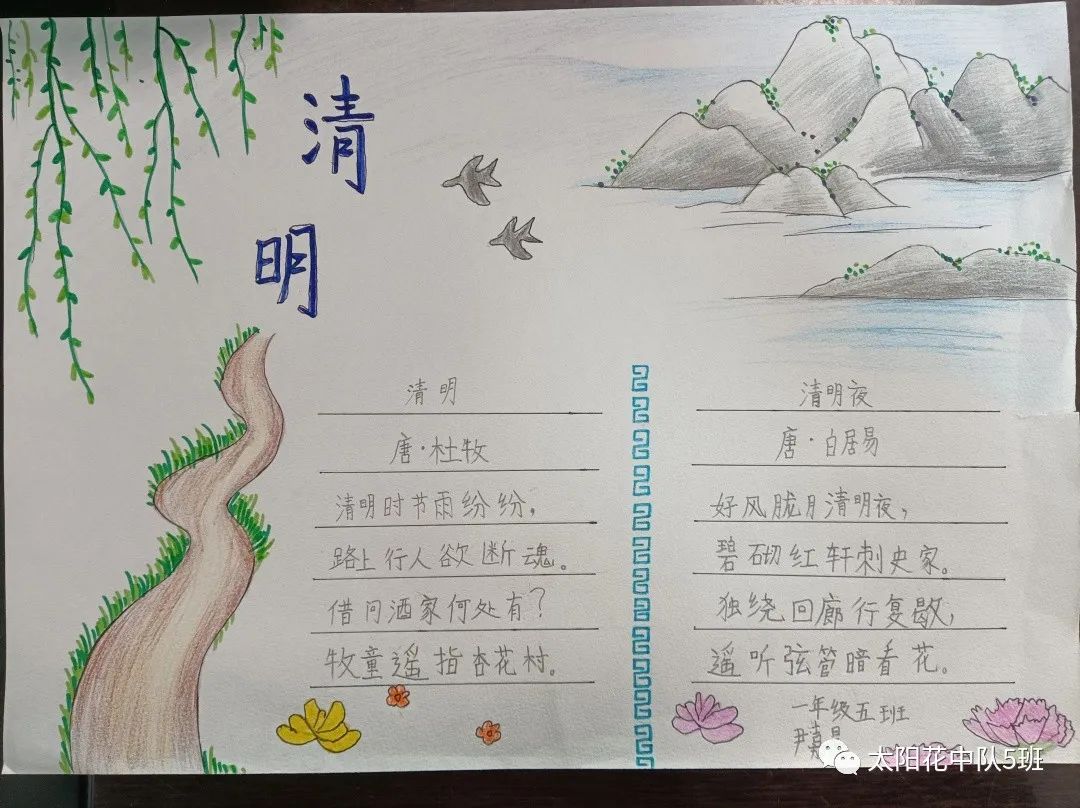 清
明
清明
唐·杜牧
清明时节雨纷纷，
路上行人欲断魂。
借问酒家何处有？
牧童遥指杏花村。
清明夜
唐·白居易
好风胧月清明夜，
碧砌红轩刺史家。
独绕回廊行复歇，
遥听弦管暗看花。
一年级五班
尹
太阳花中队5班